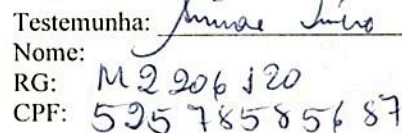 Testemunha:
Nome:
RG: M2 206 120
CPF: 525 785856 87